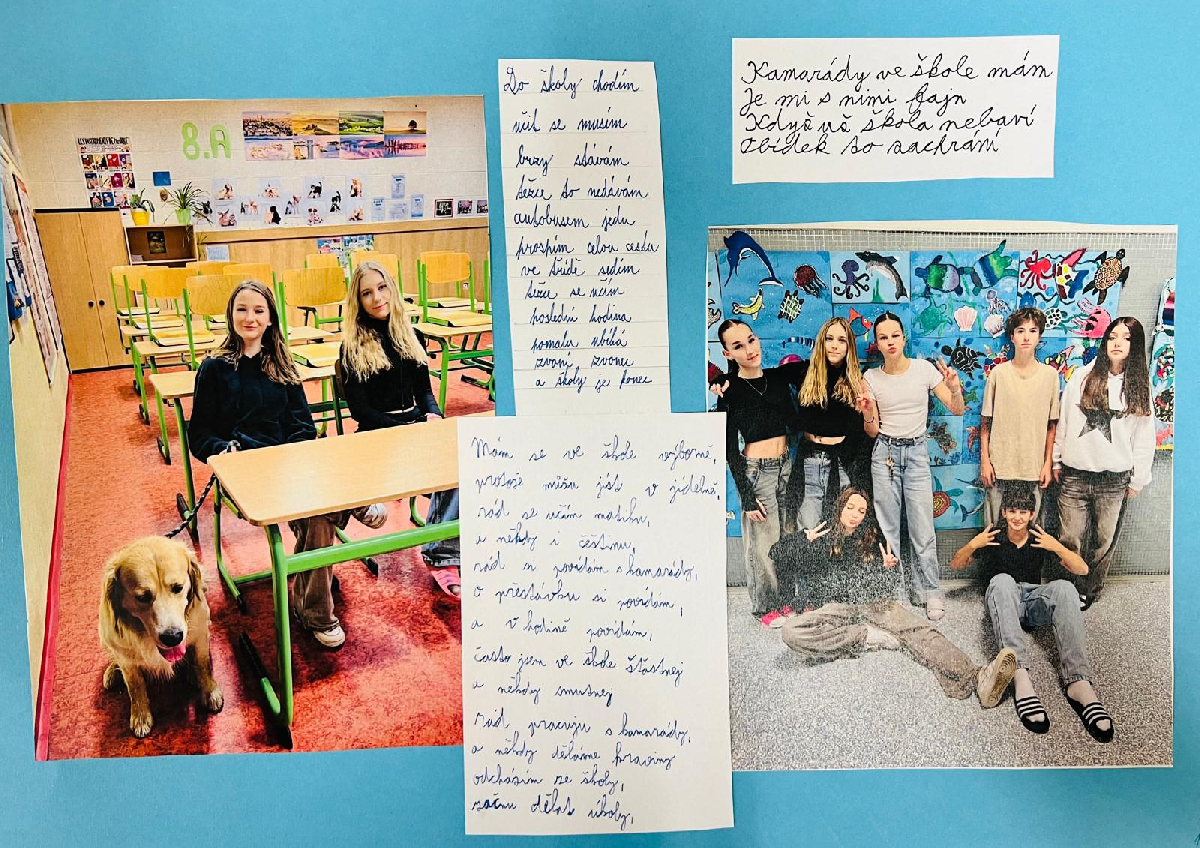 8.A
Do školy chodím
učit se musím
brzy stávám
těžce to nedávám
autobusem jedu
prospím celou cestu
ve třídě sedím
těžce se učím
poslední hodina
pomalu ubíhá
zvoní zvonec
a školy je konec
Kamarády ve škole mám
Je mi s nimi fajn
Když vě škola nebaví
Obídek to zachrání
Mám se ve škole výborně,
protože můžu jíst v jídelně,
rád se učím matiku,
a někdy i češtinu,
rád si povídám s kamarády,
o přestávku si povídám,
a v hodině povídám,
často jsem ve škole šťastnej
a někdy smutnej
rád pracuju s kamarády,
a někdy děláme kraviny
odcházím ze školy,
začnu dělat úkoly,